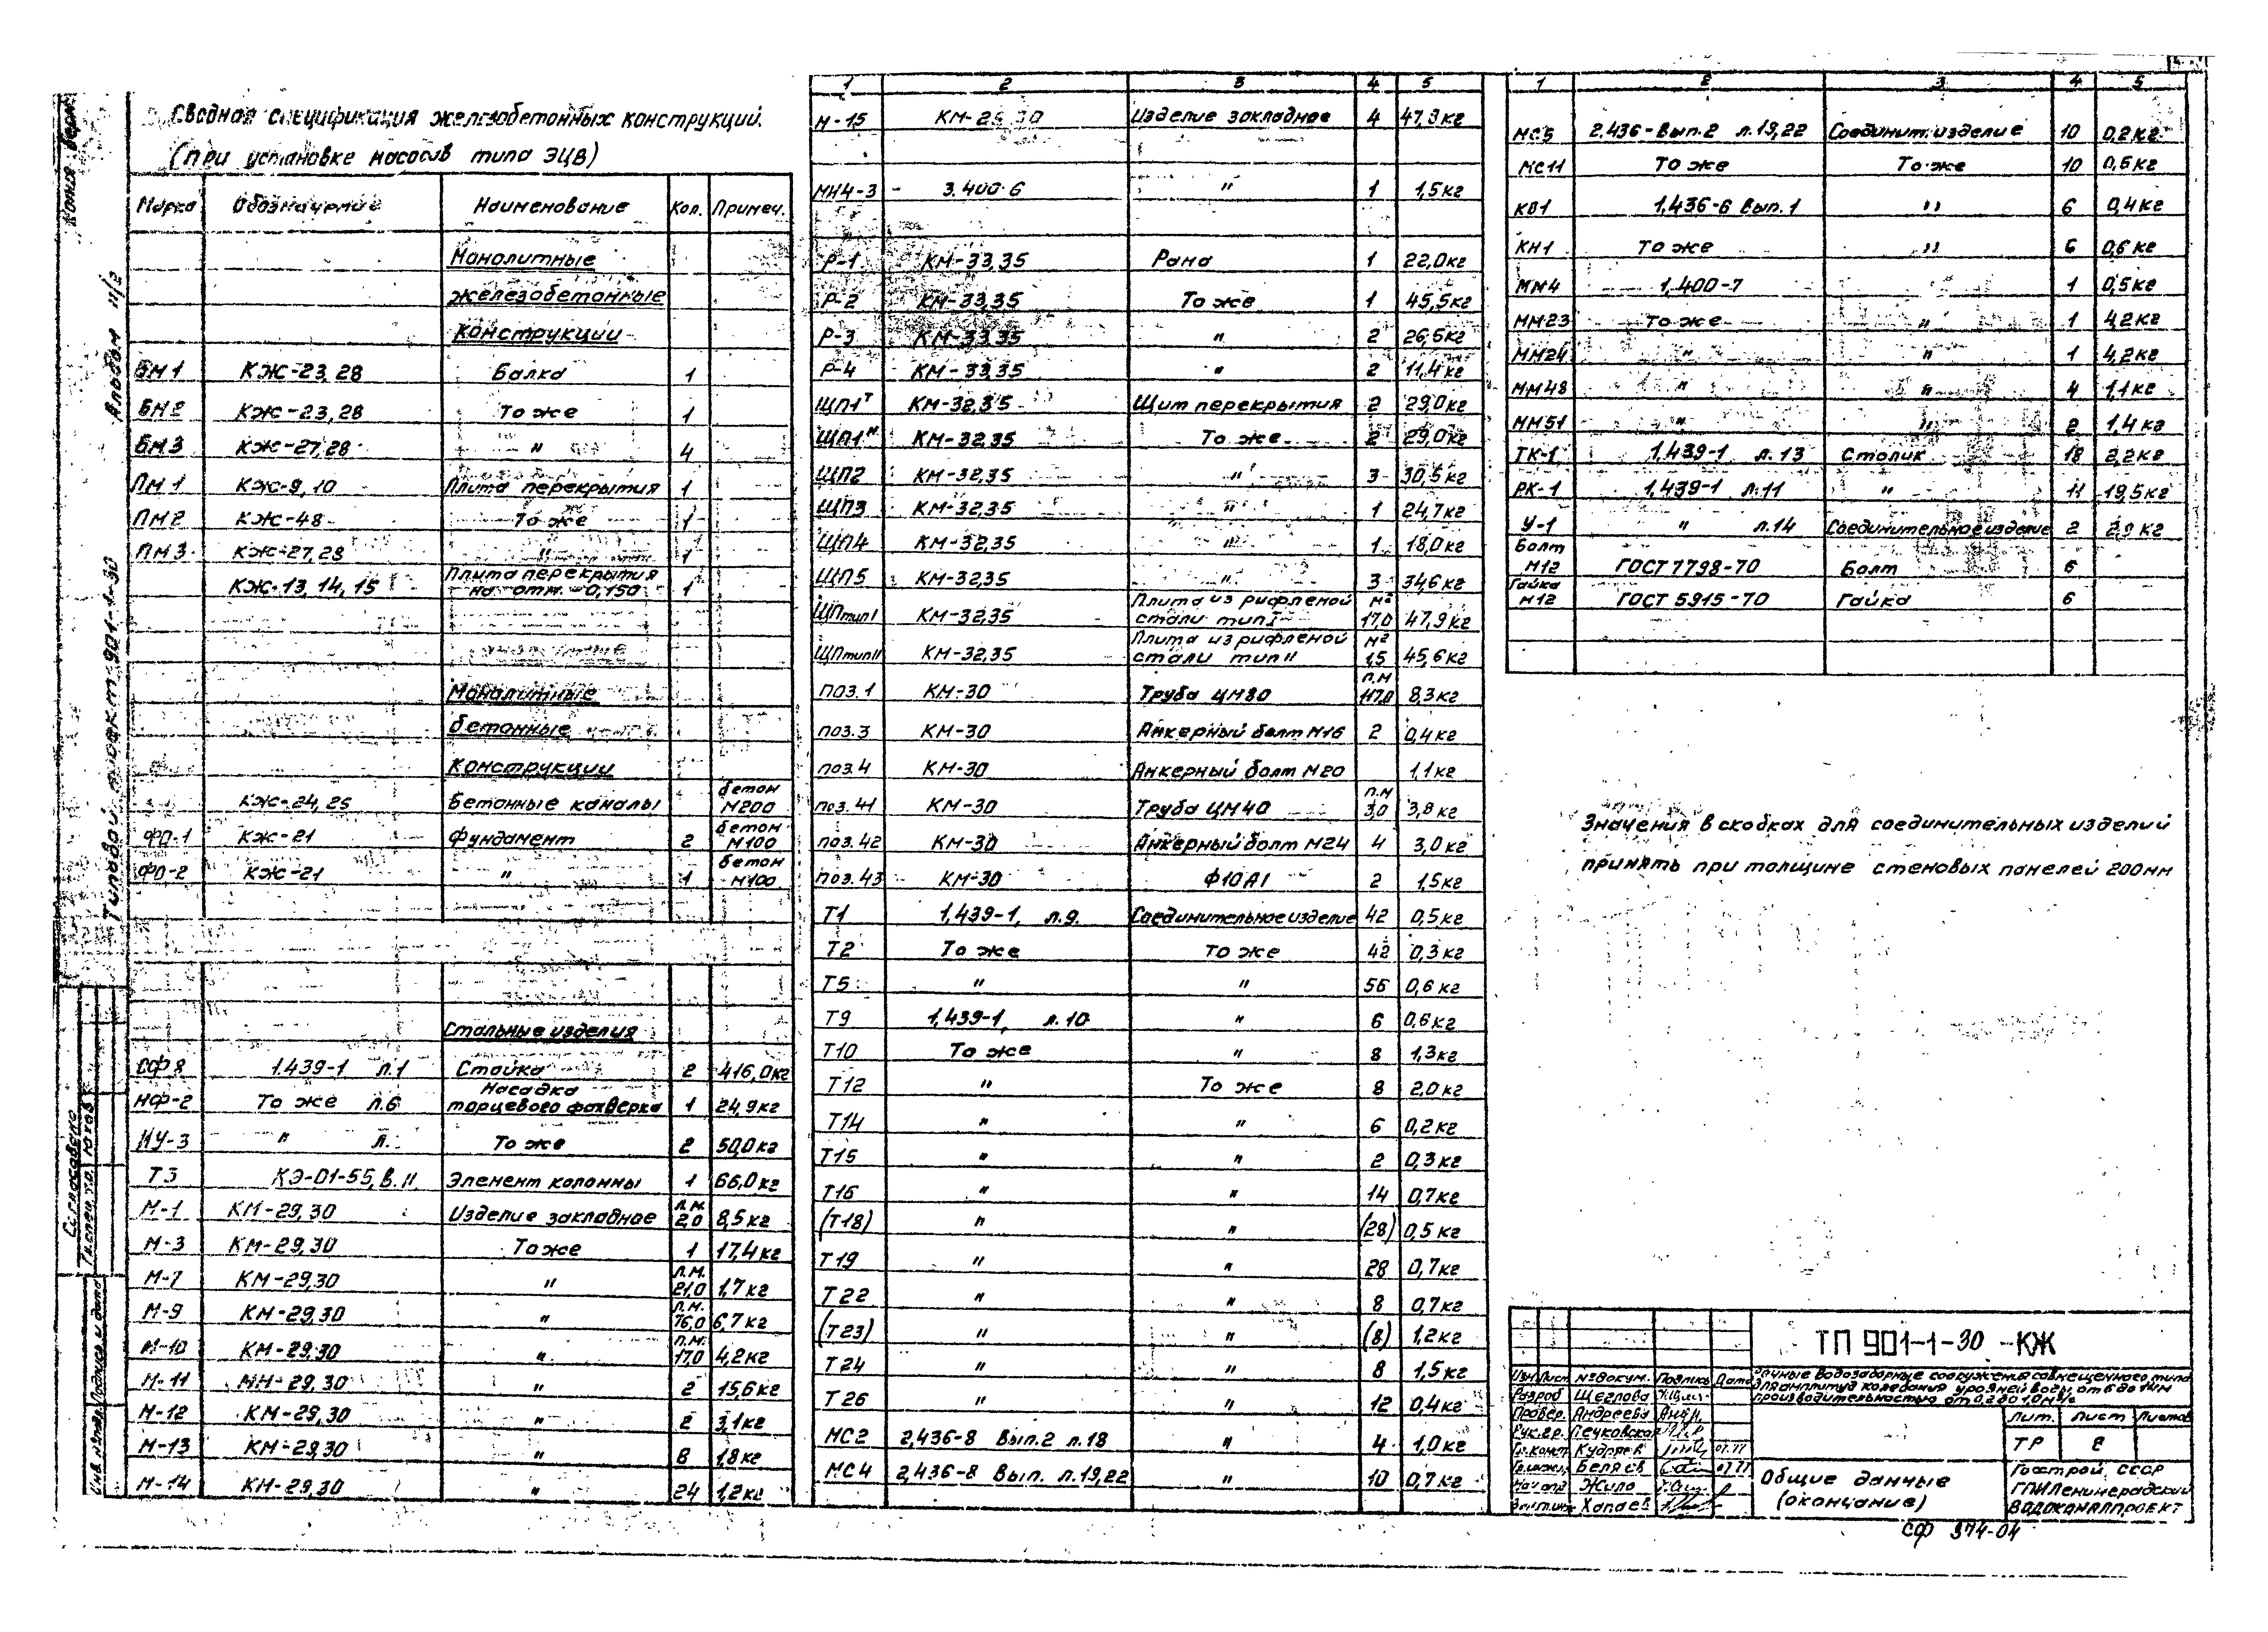 Сводная спецификация железобетонных конструкций.
(при установке насосов типа ЭЦВ)
Марка Обозначение Наименование Кол. Примеч.
Монолитные
железобетонные
конструкции
БМ1 КЖ-23,28 Балка 1
БМ2 КЖ-23,28 То же 1
БМ3 КЖ-27,28 " 4
ПМ1 КЖ-9,10 Плита перекрытия 1
ПМ2 КЖ-48 То же 1
ПМ3 КЖ-27,28 " 1
КЖ-13,14,15 Плита перекрытия на отм. -0,150 1
Монолитные
бетонные
конструкции
КЖ-24,25 Бетонные каналы бетон М200
ФО-1 КЖ-21 Фундамент 2 бетон М100
ФО-2 КЖ-21 " 1 бетон М100
Стальные изделия
СФ8 1.439-1 л.1 Стойка 2 416,0кг
НФ-2 То же л.6 Насадка торцевого фахверка 1 24,9кг
НУ-3 " л. То же 2 50,0кг
Т3 КЭ-01-55, в.II Элемент колонны 1 66,0кг
М-1 КМ-29,30 Изделие закладное п.м. 2,0 8,5кг
М-3 КМ-29,30 То же 1 17,4кг
М-7 КМ-29,30 " п.м. 21,0 1,7кг
М-9 КМ-29,30 " п.м. 76,0 6,7кг
М-10 КМ-29,30 " п.м. 17,0 4,2кг
М-11 МН-29,30 " 2 15,6кг
М-12 КМ-29,30 " 2 3,1кг
М-13 КМ-29,30 " 8 1,8кг
М-14 КМ-29,30 " 24 1,2кг
1 2 3 4 5
М-15 КМ-29,30 Изделие закладное 4 47,3кг
МН4-3 3.400-6 " 1 1,5кг
Р-1 КМ-33,35 Рама 1 22,0кг
Р-2 КМ-33,35 То же 1 45,5кг
Р-3 КМ-33,35 " 2 26,5кг
Р-4 КМ-33,35 " 2 11,4кг
ЩП1т КМ-32,35 Щит перекрытия 2 29,0кг
ЩП1н КМ-32,35 То же 2 29,0кг
ЩП2 КМ-32,35 " 3 30,5кг
ЩП3 КМ-32,35 " 1 24,7кг
ЩП4 КМ-32,35 " 1 18,0кг
ЩП5 КМ-32,35 " 3 34,6кг
ЩПтип I КМ-32,35 Плита из рифленой стали тип I м² 17,0 47,9кг
ЩПтип II КМ-32,35 Плита из рифленой стали тип II м² 1,5 45,6кг
поз.1 КМ-30 Труба ЦМ80 п.м 117,0 8,3кг
поз.3 КМ-30 Анкерный болт М16 2 0,4кг
поз.4 КМ-30 Анкерный болт М20 1,1кг
поз.41 КМ-30 Труба ЦМ40 п.м 3,0 3,8кг
поз.42 КМ-30 Анкерный болт М24 4 3,0кг
поз.43 КМ-30 Ф10АI 2 1,5кг
Т1 1,439-1, л.9. Соединительное изделие 42 0,5кг
Т2 То же То же 42 0,3кг
Т5 " " 56 0,6кг
Т9 1,439-1, л.10 " 6 0,6кг
Т10 То же " 8 1,3кг
Т12 " То же 8 2,0кг
Т14 " " 6 0,2кг
Т15 " " 2 0,3кг
Т16 " " 14 0,7кг
(Т18) " " (28) 0,5кг
Т19 " " 28 0,7кг
Т22 " " 8 0,7кг
(Т23) " " (8) 1,2кг
Т24 " " 8 1,5кг
Т26 " " 12 0,4кг
МС2 2,436-8 Вып.2 л.18 " 4 1,0кг
МС4 2,436-8 Вып. л.19,22 " 10 0,7кг
1 2 3 4 5
МС5 2.436-Вып.2 л.19,22 Соединит. изделие 10 0,2кг
МС11 То же То же 10 0,6кг
КВ1 1,436-6 Вып.1 " 6 0,4кг
КН1 То же " 6 0,6кг
ММ4 1,400-7 1 0,5кг
ММ23 То же " 1 4,2кг
ММ24 " " 1 4,2кг
ММ48 " " 4 1,1кг
ММ51 " " 2 1,4кг
ТК-1 1,439-1 л.13 Столик 18 2,2кг
РК-1 1,439-1 л.11 " 11 19,5кг
У-1 " л.14 Соединительное изделие 2 2,9кг
Болт М12 ГОСТ 7798-70 Болт 6
Гайка М12 ГОСТ 5915-70 Гайка 6
Значения в скобках для соединительных изделий
принять при толщине стеновых панелей 200мм
ТП 901-1-30 -КЖ
Речные водозаборные сооружения совмещенного типа
для амплитуд колебания уровней воды от 6 до 14м
производительностью от 0,2 до 1,0м³/с
Изм Лист № докум. Подпись Дата
Разраб Щеглова
Провер. Андреева
Рук.гр. Печковская
Гл.конст Кудряев 07.77
Гл.инж. Беляев 07.77
Нач отд Жила
Хапаев
Лит. Лист Листов
ТР 8
Общие данные
(окончание)
Госстрой СССР
ГПИ Ленинградский
ВОДОКАНАЛПРОЕКТ
СФ 374-04
Копия верна
Альбом II/3
Типовой проект 901-1-30
Согласовано
Гл.спец. Т.О.
Инв. № подл. Подпись и дата